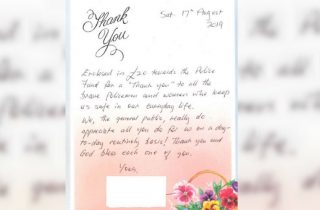 Thank
You
Sat. 17th August
2019
Enclosed is £20 towards the Police
Fund for a "Thank you" to all the
brave policemen and women who keep
us safe in our everyday life.
We, the general public, really do
appreciate all you do for us on a day-
to-day routinely basis! Thank you and
God bless each one of you.